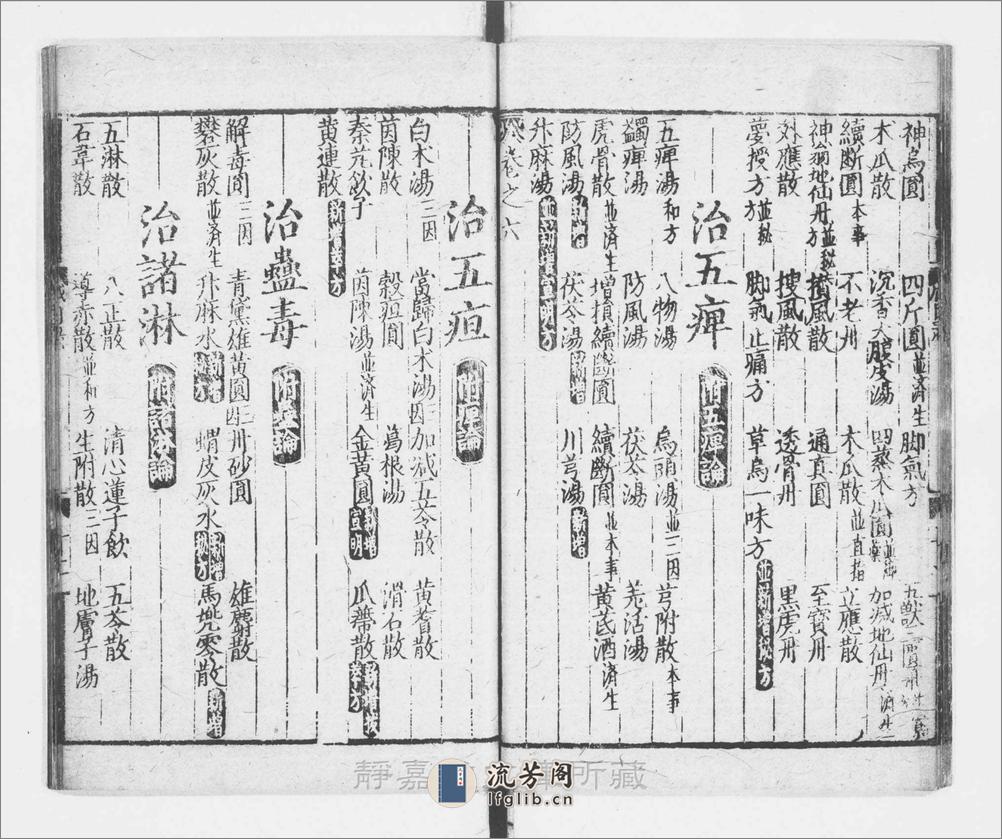 神烏圓 四斤圓並済生 脚氣方
木瓜散 沉香大腹皮湯 加減地仙丹
續斷圓本事 不老丹 木瓜散並直指 立應散
神仙地仙丹方並秘 搜風散 通真圓 至寳丹
外應散 搜風散 透骨丹 黒虎丹
夢授方並秘 脚氣止痛方 草烏一味方並新増秘方
治五痺 附五痺論
五痺湯和方 八物湯 烏頭湯並三因 芎附散本事
蠲痺湯 防風湯 茯苓湯 羗活湯
虎骨散並済生 増損續斷圓 續斷圓並本事 黄芪酒済生
防風湯 茯苓湯新増 川芎湯新増
升麻湯並新増宣明方
卷之六
治五疸
白术湯三因 當歸白术湯三因 加减五苓散 黄蓍散
茵陳散 榖疸圓 葛根湯 滑石散
秦艽飲子 茵陳湯並済生 金黄圓新増宣明 瓜蔕散
黄連散
治蠱毒
解毒圓三因 青黛雄黄圓 丹砂圓 雄麝散
礬灰散並済生 升麻水 蝟皮灰水 馬兠零散新増
治諸淋
五淋散 八正散 清心蓮子飲 五苓散
石韋散 導赤散並和方 生附散三因 地膚子湯
靜嘉 所藏
流芳阁
lfglib.cn